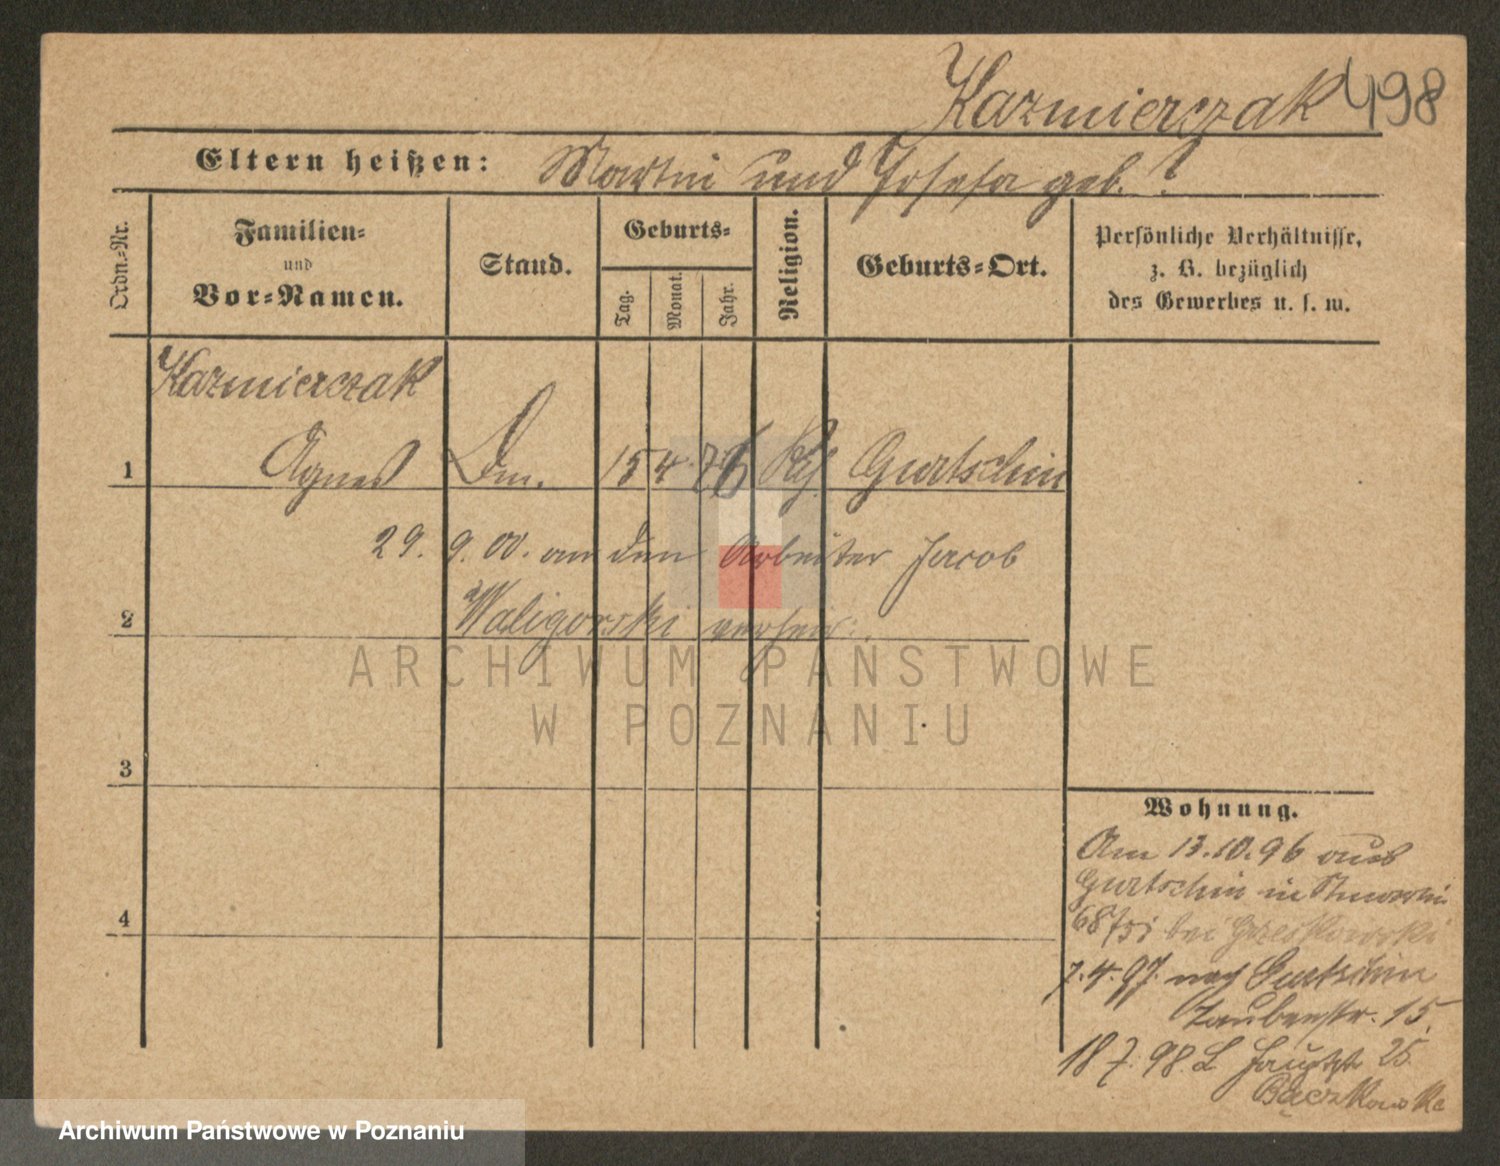 Kazmierczak 498
Eltern heißen: Martin und Josefa geb. ?
Ordn.-Nr.
Familien-
und
Vor-Namen.
Stand.
Geburts-
Tag. Monat. Jahr.
Religion.
Geburts-Ort.
Persönliche Verhältnisse,
z. B. bezüglich
des Gewerbes u. s. w.
Kazmierczak
1 Agnes Dm. 15 4. 76 Kth. Gurtschin
29. 9. 00. an den Arbeiter Jacob
2 Waligorski verheir.
3
4
Wohnung.
Am 13.10.96 aus
Gurtschin in
68/ bei
7.4.97. nach Gurtschin
Taubenstr. 15.
18 7. 98 L 25.
Bączkowska
ARCHIWUM PAŃSTWOWE
W POZNANIU
Archiwum Państwowe w Poznaniu